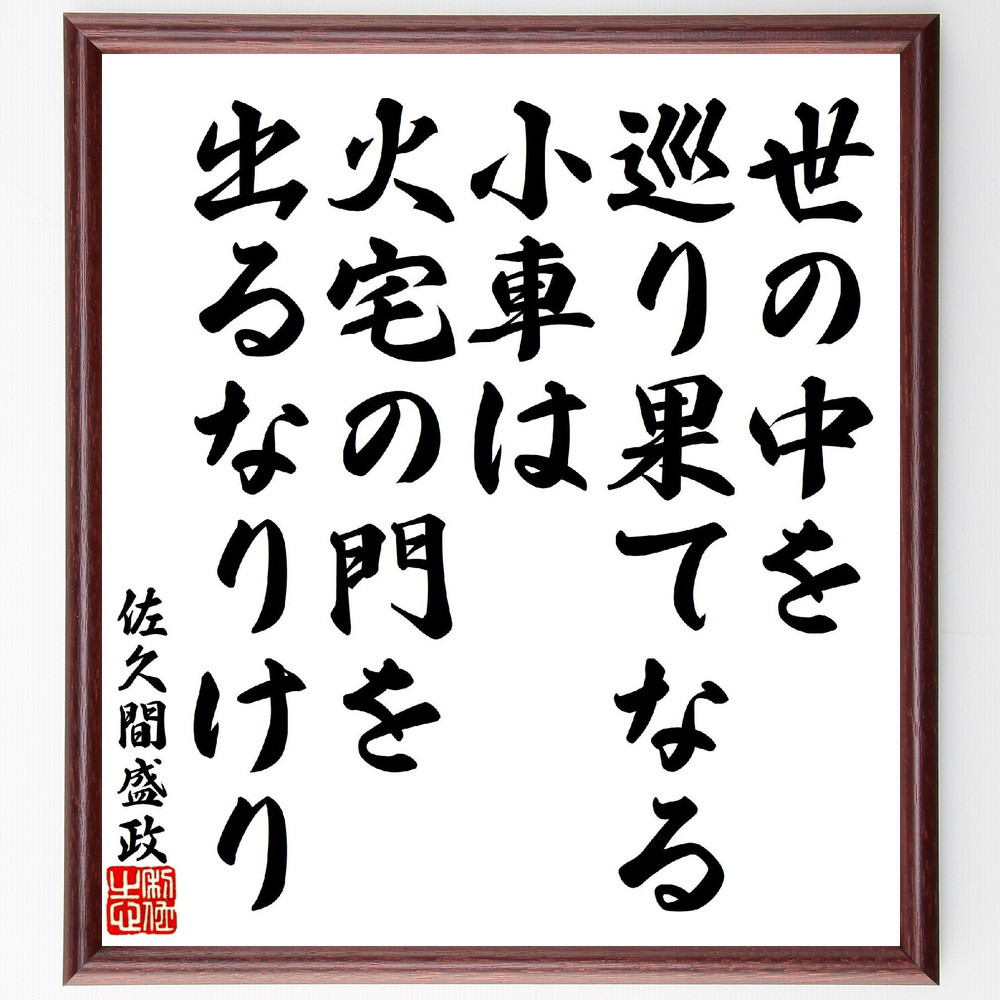 世の中を
巡り果てなる
小車は
火宅の門を
出るなりけり
佐久間盛政